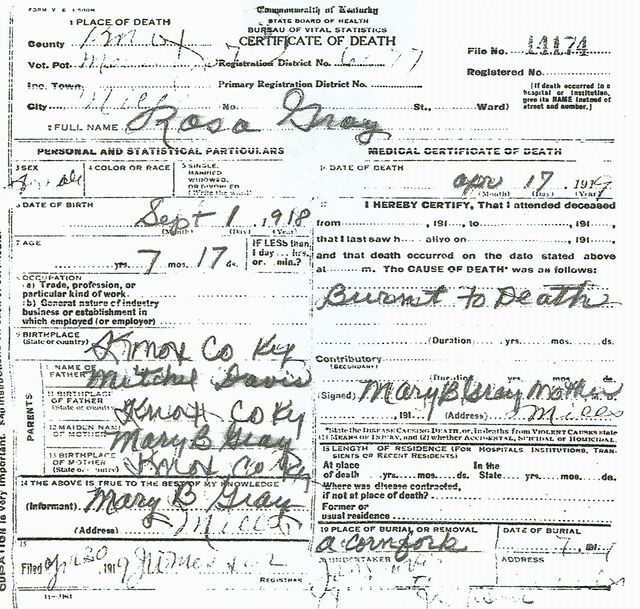 Commonwealth of Kentucky
STATE BOARD OF HEALTH
BUREAU OF VITAL STATISTICS
CERTIFICATE OF DEATH
1 PLACE OF DEATH
County Knox
Vot. Pct.
Registration District No.
File No. 14174
Inc. Town
Primary Registration District No.
Registered No.
City
No. St., Ward)
[If death occurred in a hospital or institution, give its NAME instead of street and number.]
2 FULL NAME Rosa Gray
PERSONAL AND STATISTICAL PARTICULARS
MEDICAL CERTIFICATE OF DEATH
3 SEX
4 COLOR OR RACE
5 SINGLE, MARRIED WIDOWED, OR DIVORCED (Write the word)
DATE OF DEATH
Apr 17 1919
(Month) (Day) (Year)
DATE OF BIRTH
Sept 1, 1918
(Month) (Day) (Year)
7 AGE
yrs. 7 mos. 17 ds.
IF LESS than 1 day hrs. or min.?
OCCUPATION
a) Trade, profession, or particular kind of work
b) General nature of industry business or establishment in which employed (or employer)
9 BIRTHPLACE (State or country)
Knox Co Ky
PARENTS
NAME OF FATHER Mitchel Davis
11 BIRTHPLACE OF FATHER (State or country) Knox Co Ky
12 MAIDEN NAME OF MOTHER Mary B Gray
BIRTHPLACE OF MOTHER (State or country) Knox Co Ky
14 THE ABOVE IS TRUE TO THE BEST OF MY KNOWLEDGE
(Informant) Mary B Gray
(Address) Mills
Filed Apr 20 1919
REGISTRAR
I HEREBY CERTIFY, That I attended deceased
from , 191 , to , 191 ,
that I last saw h alive on , 191 ,
and that death occurred on the date stated above
at m. The CAUSE OF DEATH* was as follows:
Burnt to Death
(Duration yrs. mos. ds.
Contributory
(SECONDARY)
(Duration yrs. mos. ds.
(Signed) Mary B Gray Mother
191 (Address) Mills
*State the DISEASE CAUSING DEATH, or, in deaths from VIOLENT CAUSES state
(1) MEANS OF INJURY, and (2) whether ACCIDENTAL, SUICIDAL or HOMICIDAL.
LENGTH OF RESIDENCE (FOR HOSPITALS, INSTITUTIONS, TRANSIENTS OR RECENT RESIDENTS)
At place of death yrs. mos. ds. In the State yrs. mos. ds.
Where was disease contracted, if not at place of death?
Former or usual residence
19 PLACE OF BURIAL OR REMOVAL
DATE OF BURIAL
UNDERTAKER
ADDRESS